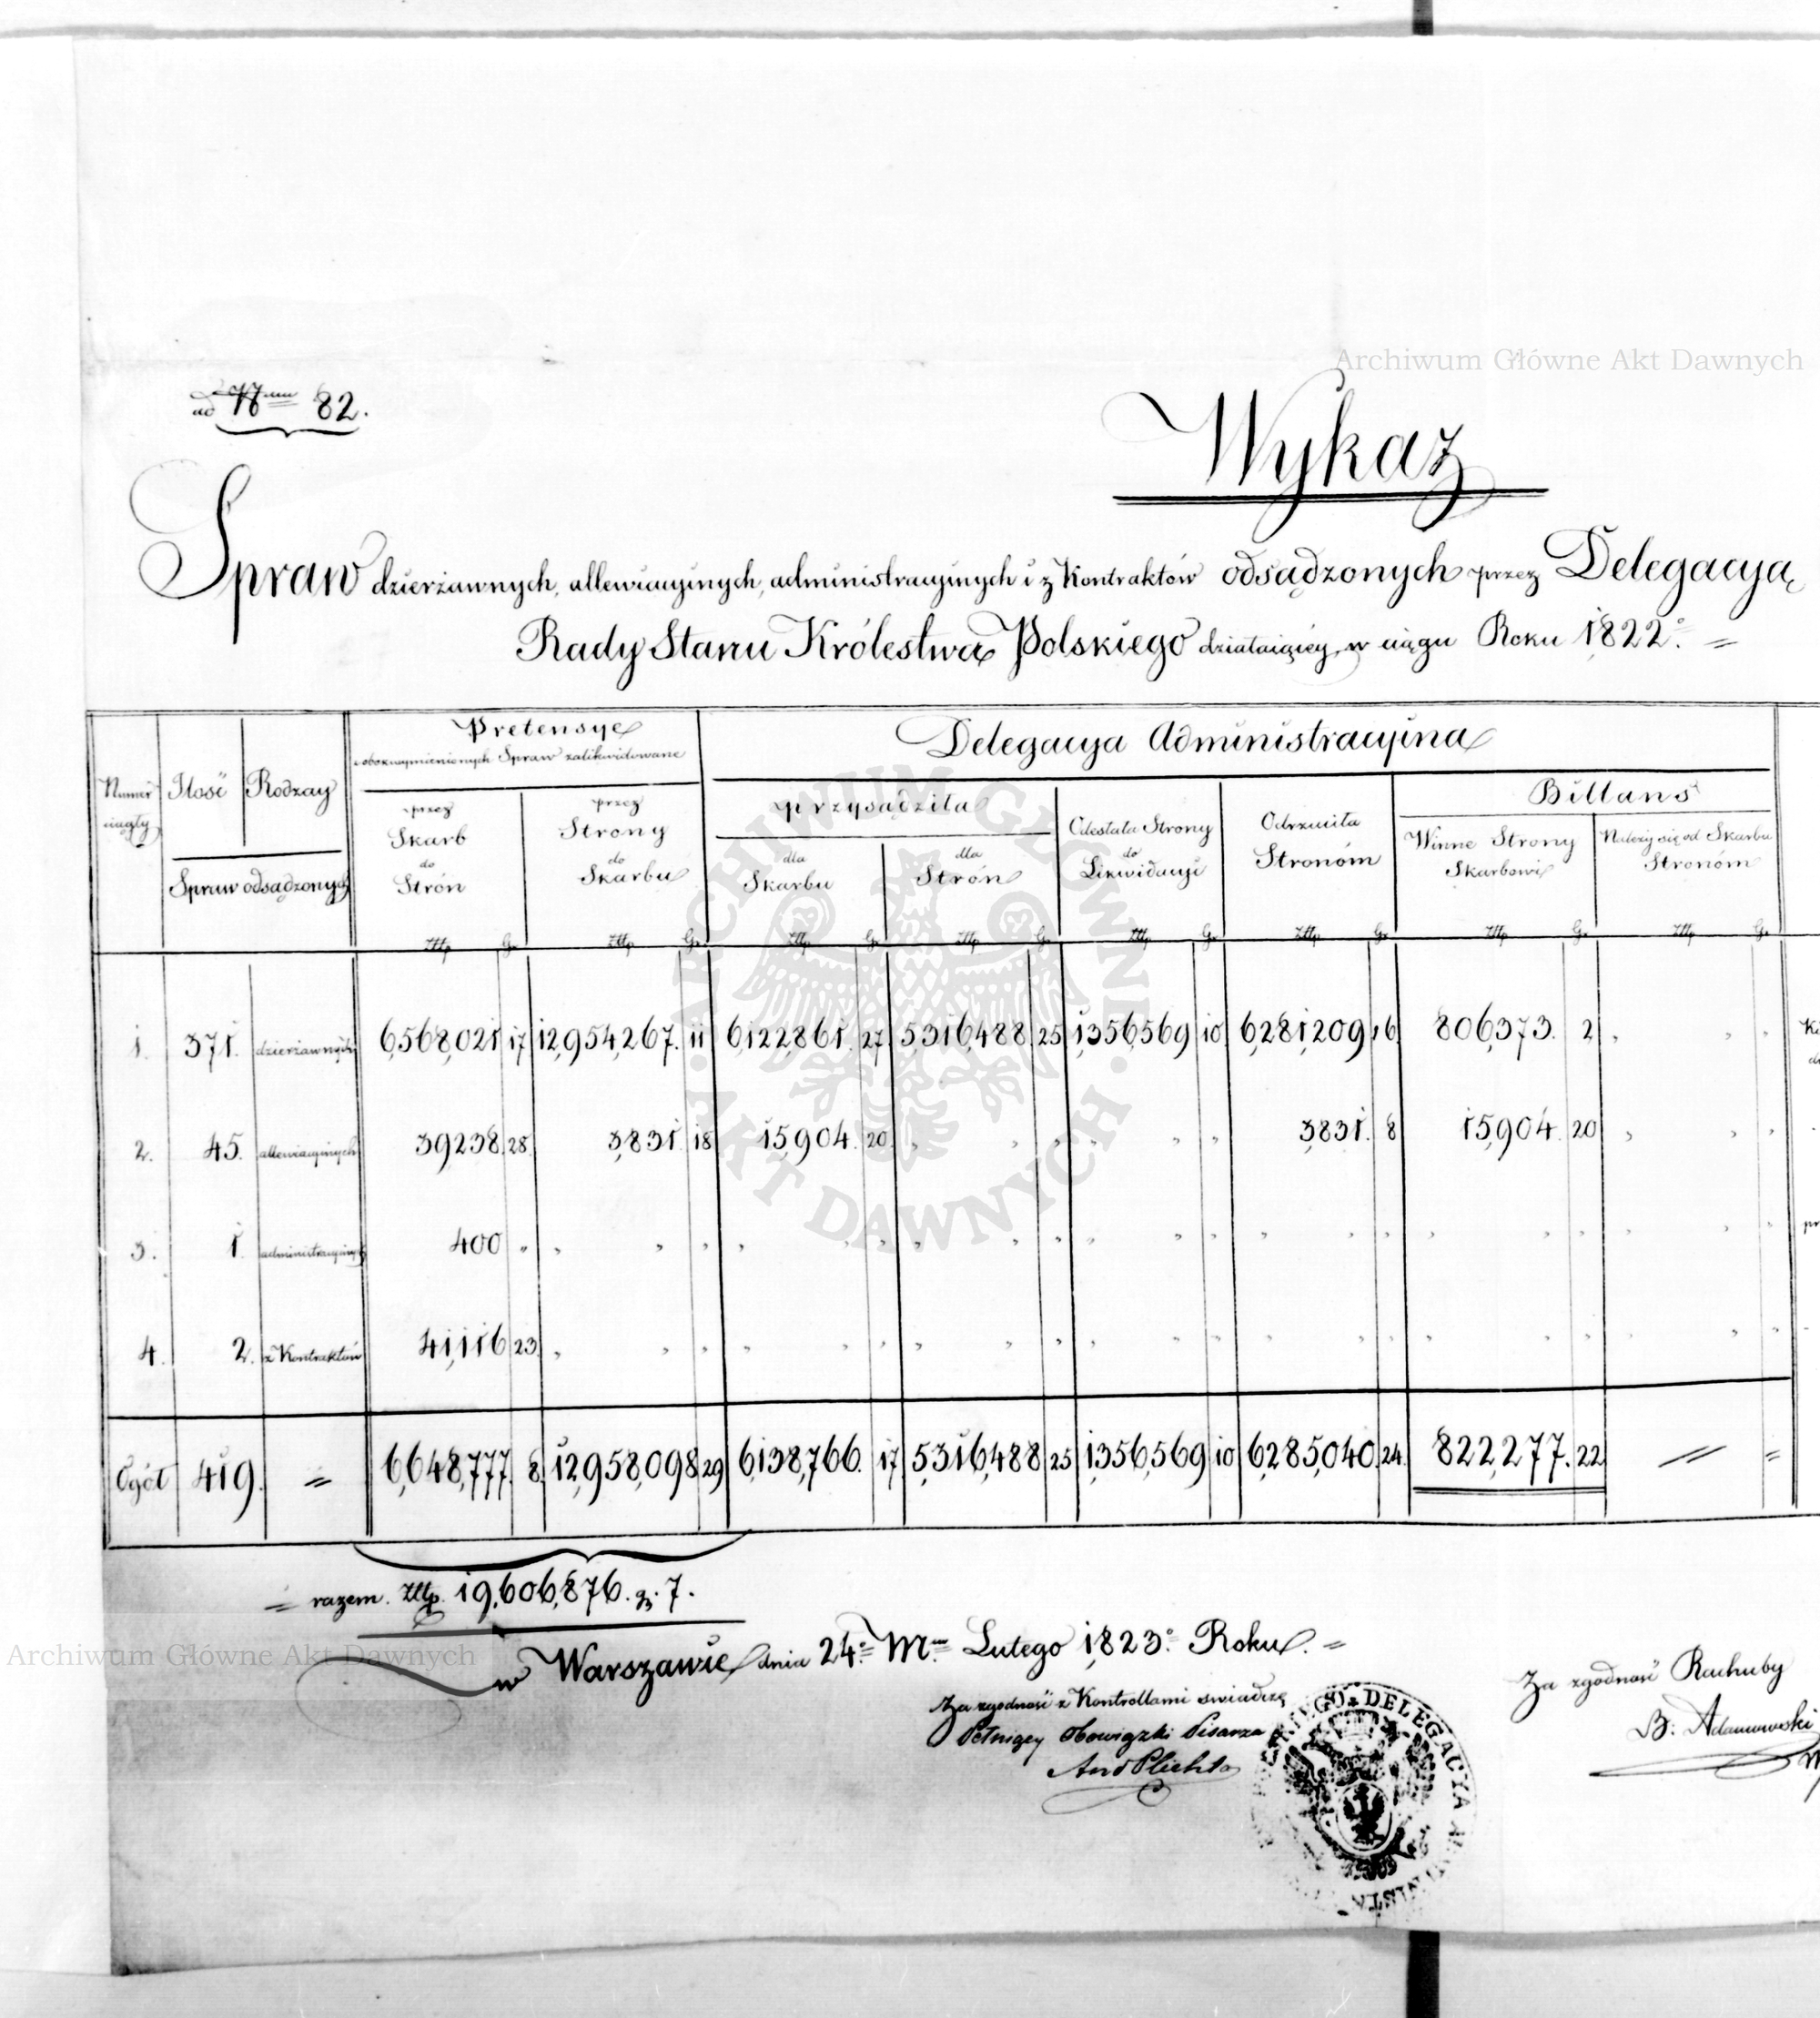 Archiwum Główne Akt Dawnych
ad 82.
Wykaz
Spraw dzierżawnych, allewiacyinych, administracyinych i z Kontraktów odsądzonych przez Delegacyą
Rady Stanu Królestwa Polskiego działaiącéy w ciągu Roku 1822.º =
Numer ciągły
Ilość
Rodzay
Spraw odsądzonych
Pretensye
obokwymienionych Spraw zalikwidowane
przez Skarb do Strón
przez Strony do Skarbu
Delegacya Administracyina
przysądziła
dla Skarbu
dla Strón
Odesłała Strony do Likwidacyi
Odrzuciła Stronóm
Billans
Winne Strony Skarbowi
Należy się od Skarbu Stronóm
Złłp Gr Złłp Gr Złłp Gr Złłp Gr Złłp Gr Złłp Gr Złłp Gr Złłp Gr
1. 371. dzierżawnych 6,568,021 17 12,954,267. 11 6,122,861. 27 5,316,488 25 1,356,569 10 6,281,209 16 806,373. 2 " " "
2. 45. allewiacyinych 39238 28. 3,831 18 15,904. 20 " " " " " " 3,831. 8 15,904. 20 " " "
3. 1. administracyinych 400 " " " " " " " " " " " " " " " " " " " " " "
4. 2. z Kontraktów 41,116 23 " " " " " " " " " " " " " " " " " " " " "
Ogół 419. = 6,648,777. 8 12,958,098 29 6,138,766. 17 5,316,488 25 1,356,569 10 6,285,040. 24. 822,277. 22 = =
= razem. Złłp. 19,606,876. gr. 7.
Archiwum Główne Akt Dawnych
w Warszawie dnia 24.º M. Lutego 1823.º Roku. =
Za zgodność z Kontrollami świadczę
Pełniący Obowiązki Pisarza
And Plichta
DELEGACYA
Za zgodność Rachuby
B. Adamowski
ARCHIWUM GŁÓWNE · AKT DAWNYCH ·